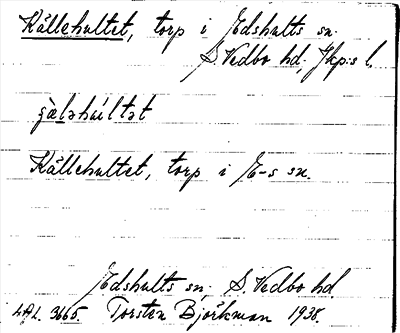 Källehultet, torp i Edshults sn.
S. Vedbo hd, Jkp:s l.
Källehultet, torp i E-s sn.
Edshults sn, S. Vedbo hd.
3665. Torsten Björkman 1938.